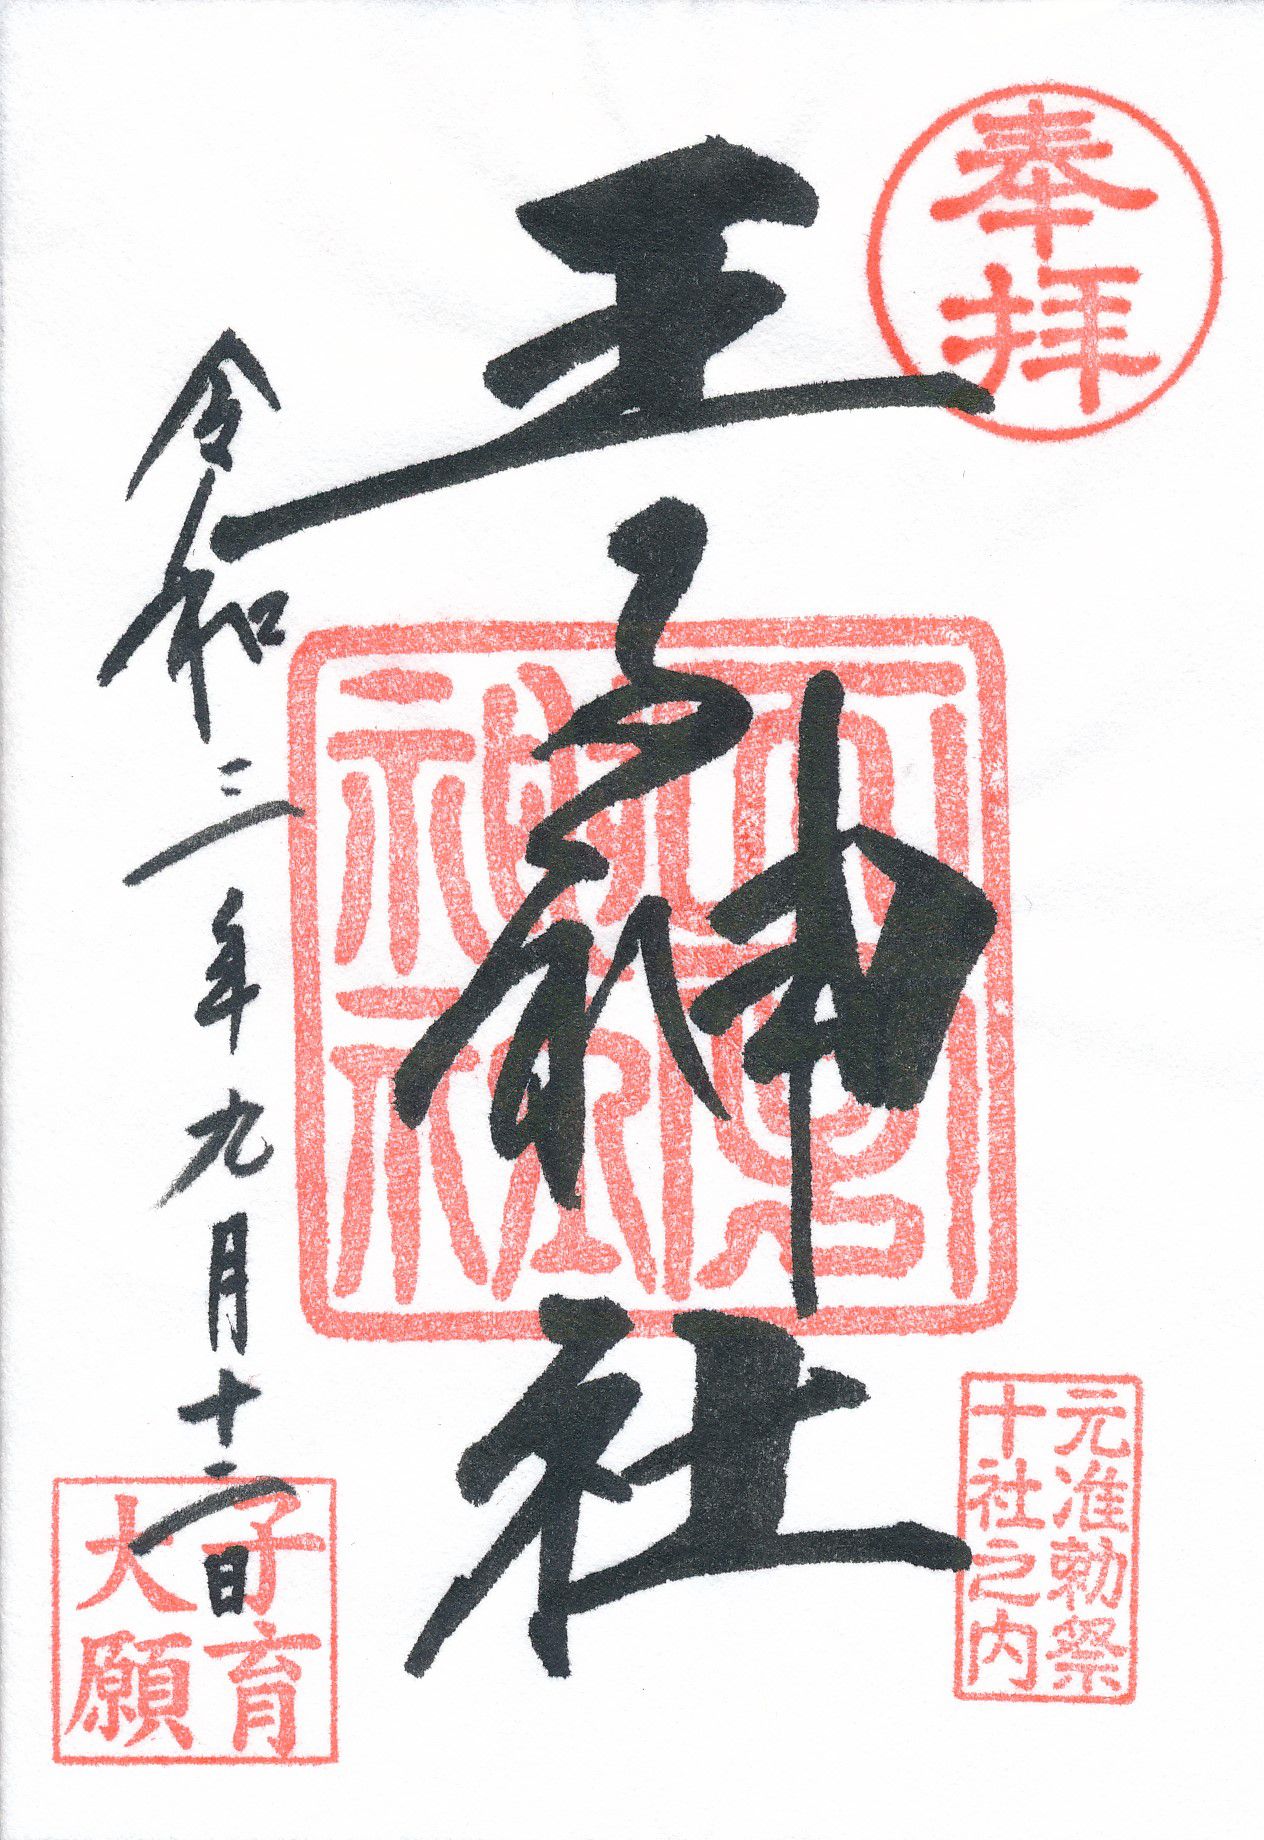 奉拝
元准勅祭
十社之内
王子神社
令和三年九月十二日
子育
大願